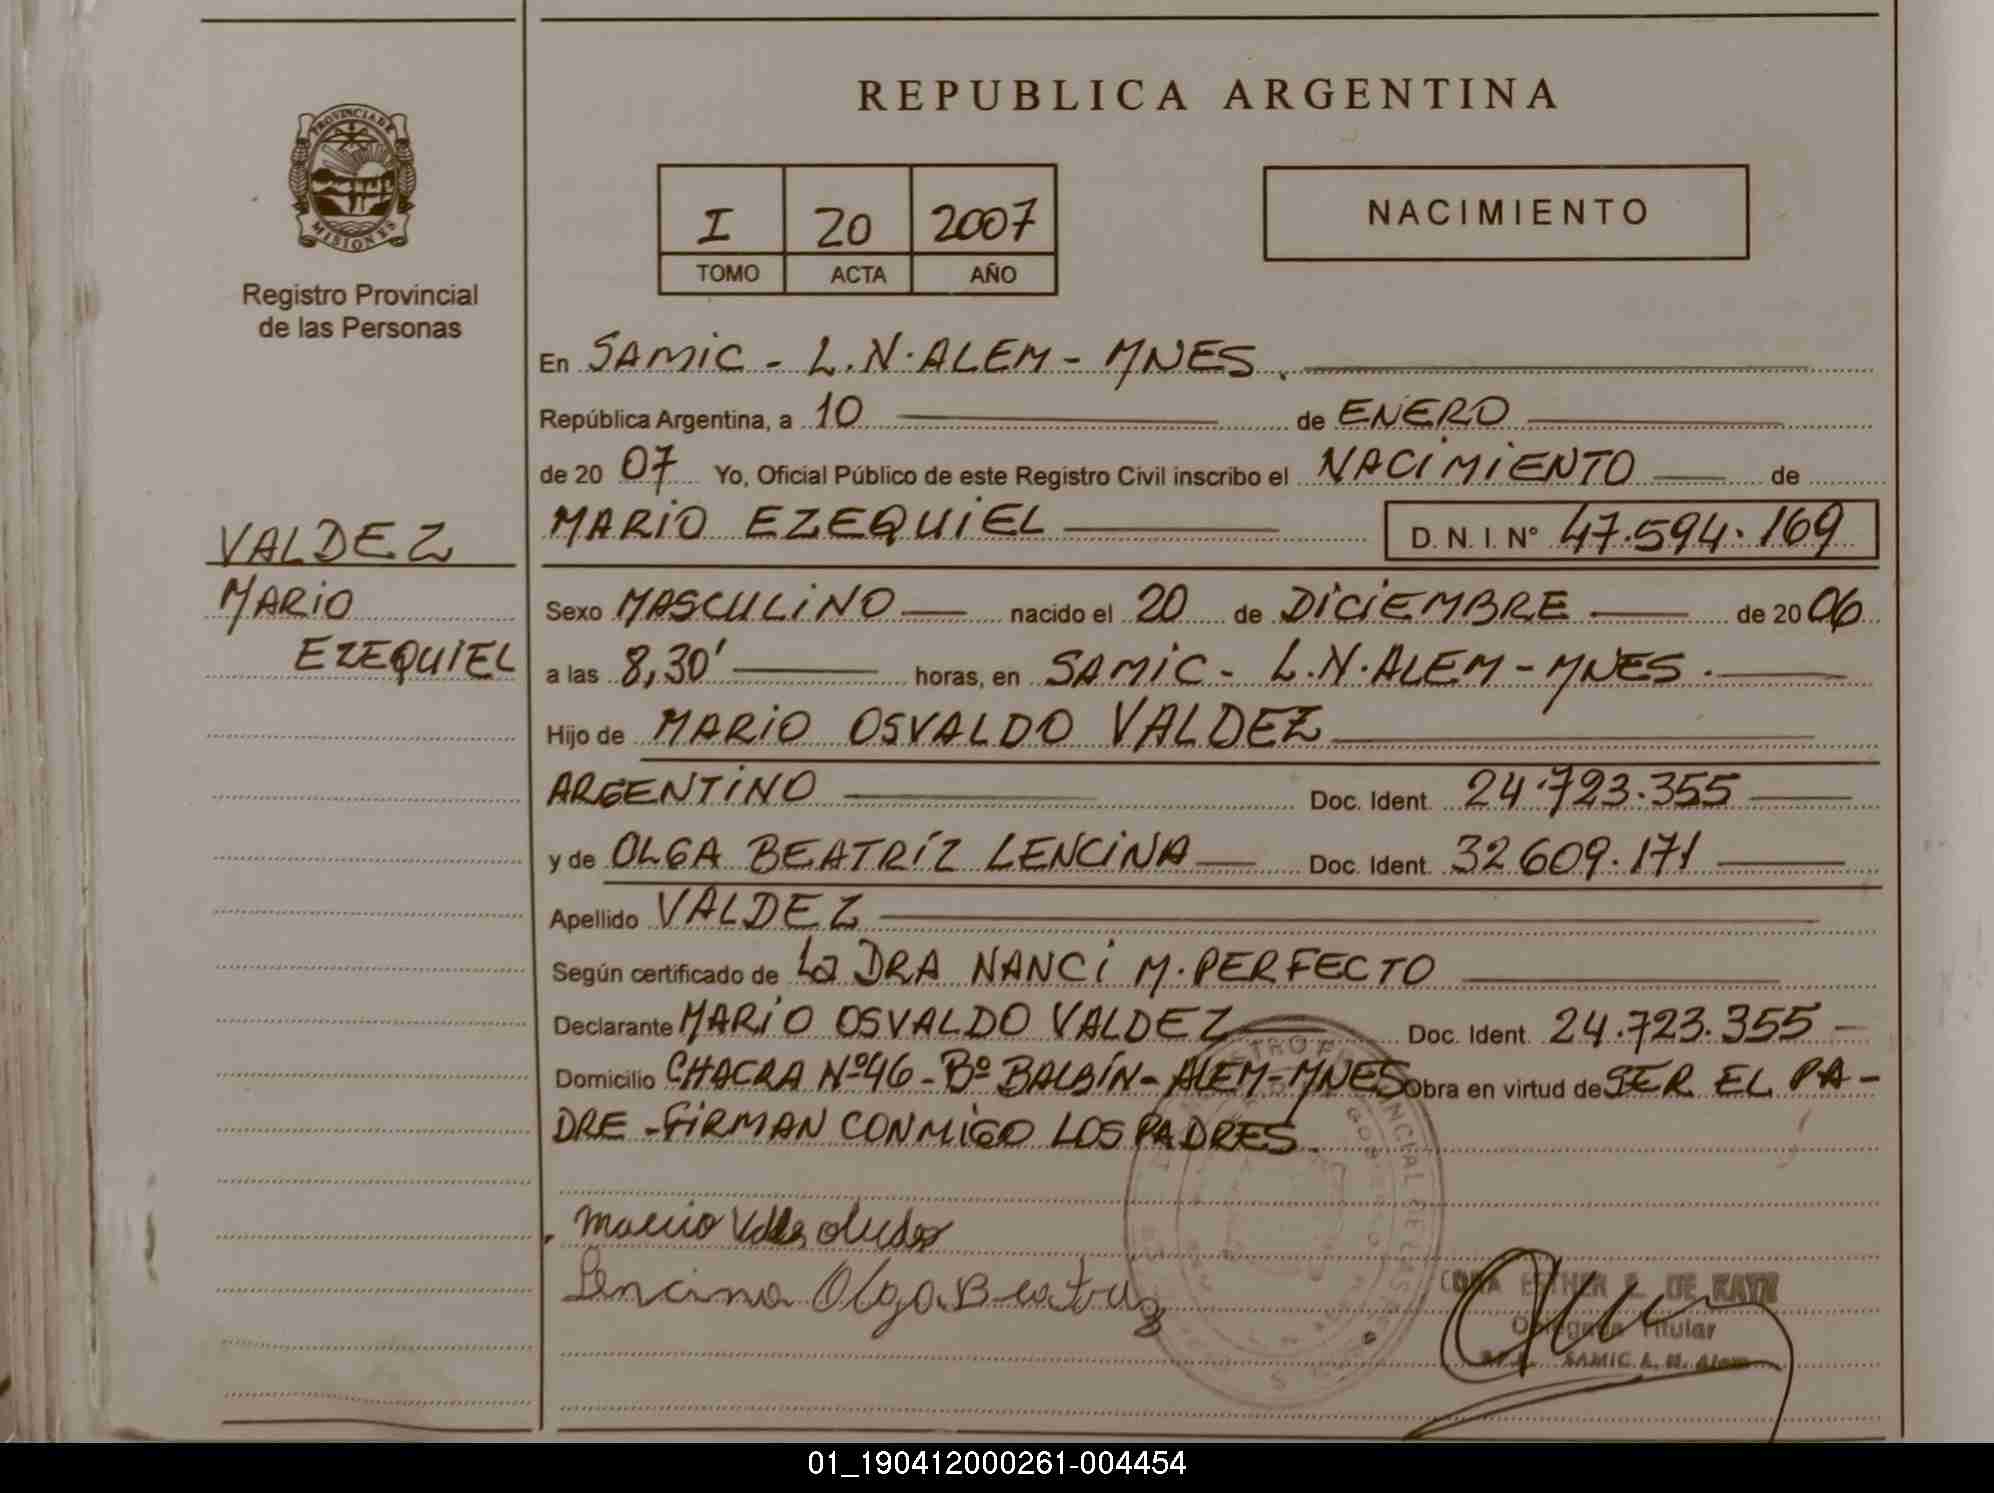 REPUBLICA ARGENTINA
PROVINCIA DE
MISIONES
Registro Provincial
de las Personas
I 20 2007
TOMO ACTA AÑO
NACIMIENTO
En SAMIC - L.N. ALEM - MNES.
República Argentina, a 10 de ENERO
de 20 07 Yo, Oficial Público de este Registro Civil inscribo el NACIMIENTO de
VALDEZ
MARIO
EZEQUIEL
MARIO EZEQUIEL D. N. I. N° 47.594.169
Sexo MASCULINO nacido el 20 de DICIEMBRE de 20 06
a las 8,30' horas, en SAMIC - L.N. ALEM - MNES.
Hijo de MARIO OSVALDO VALDEZ
ARGENTINO Doc. Ident. 24.723.355
y de OLGA BEATRÍZ LENCINA Doc. Ident. 32.609.171
Apellido VALDEZ
Según certificado de La DRA NANCI M. PERFECTO
Declarante MARIO OSVALDO VALDEZ Doc. Ident. 24.723.355
Domicilio CHACRA Nº46 - Bº BALBÍN - ALEM - MNES Obra en virtud de SER EL PA-
DRE - FIRMAN CONMIGO LOS PADRES.
Lencina Olga Beatriz
ESTHER DE
Delegada Titular
SAMIC L. N. Alem
01_190412000261-004454